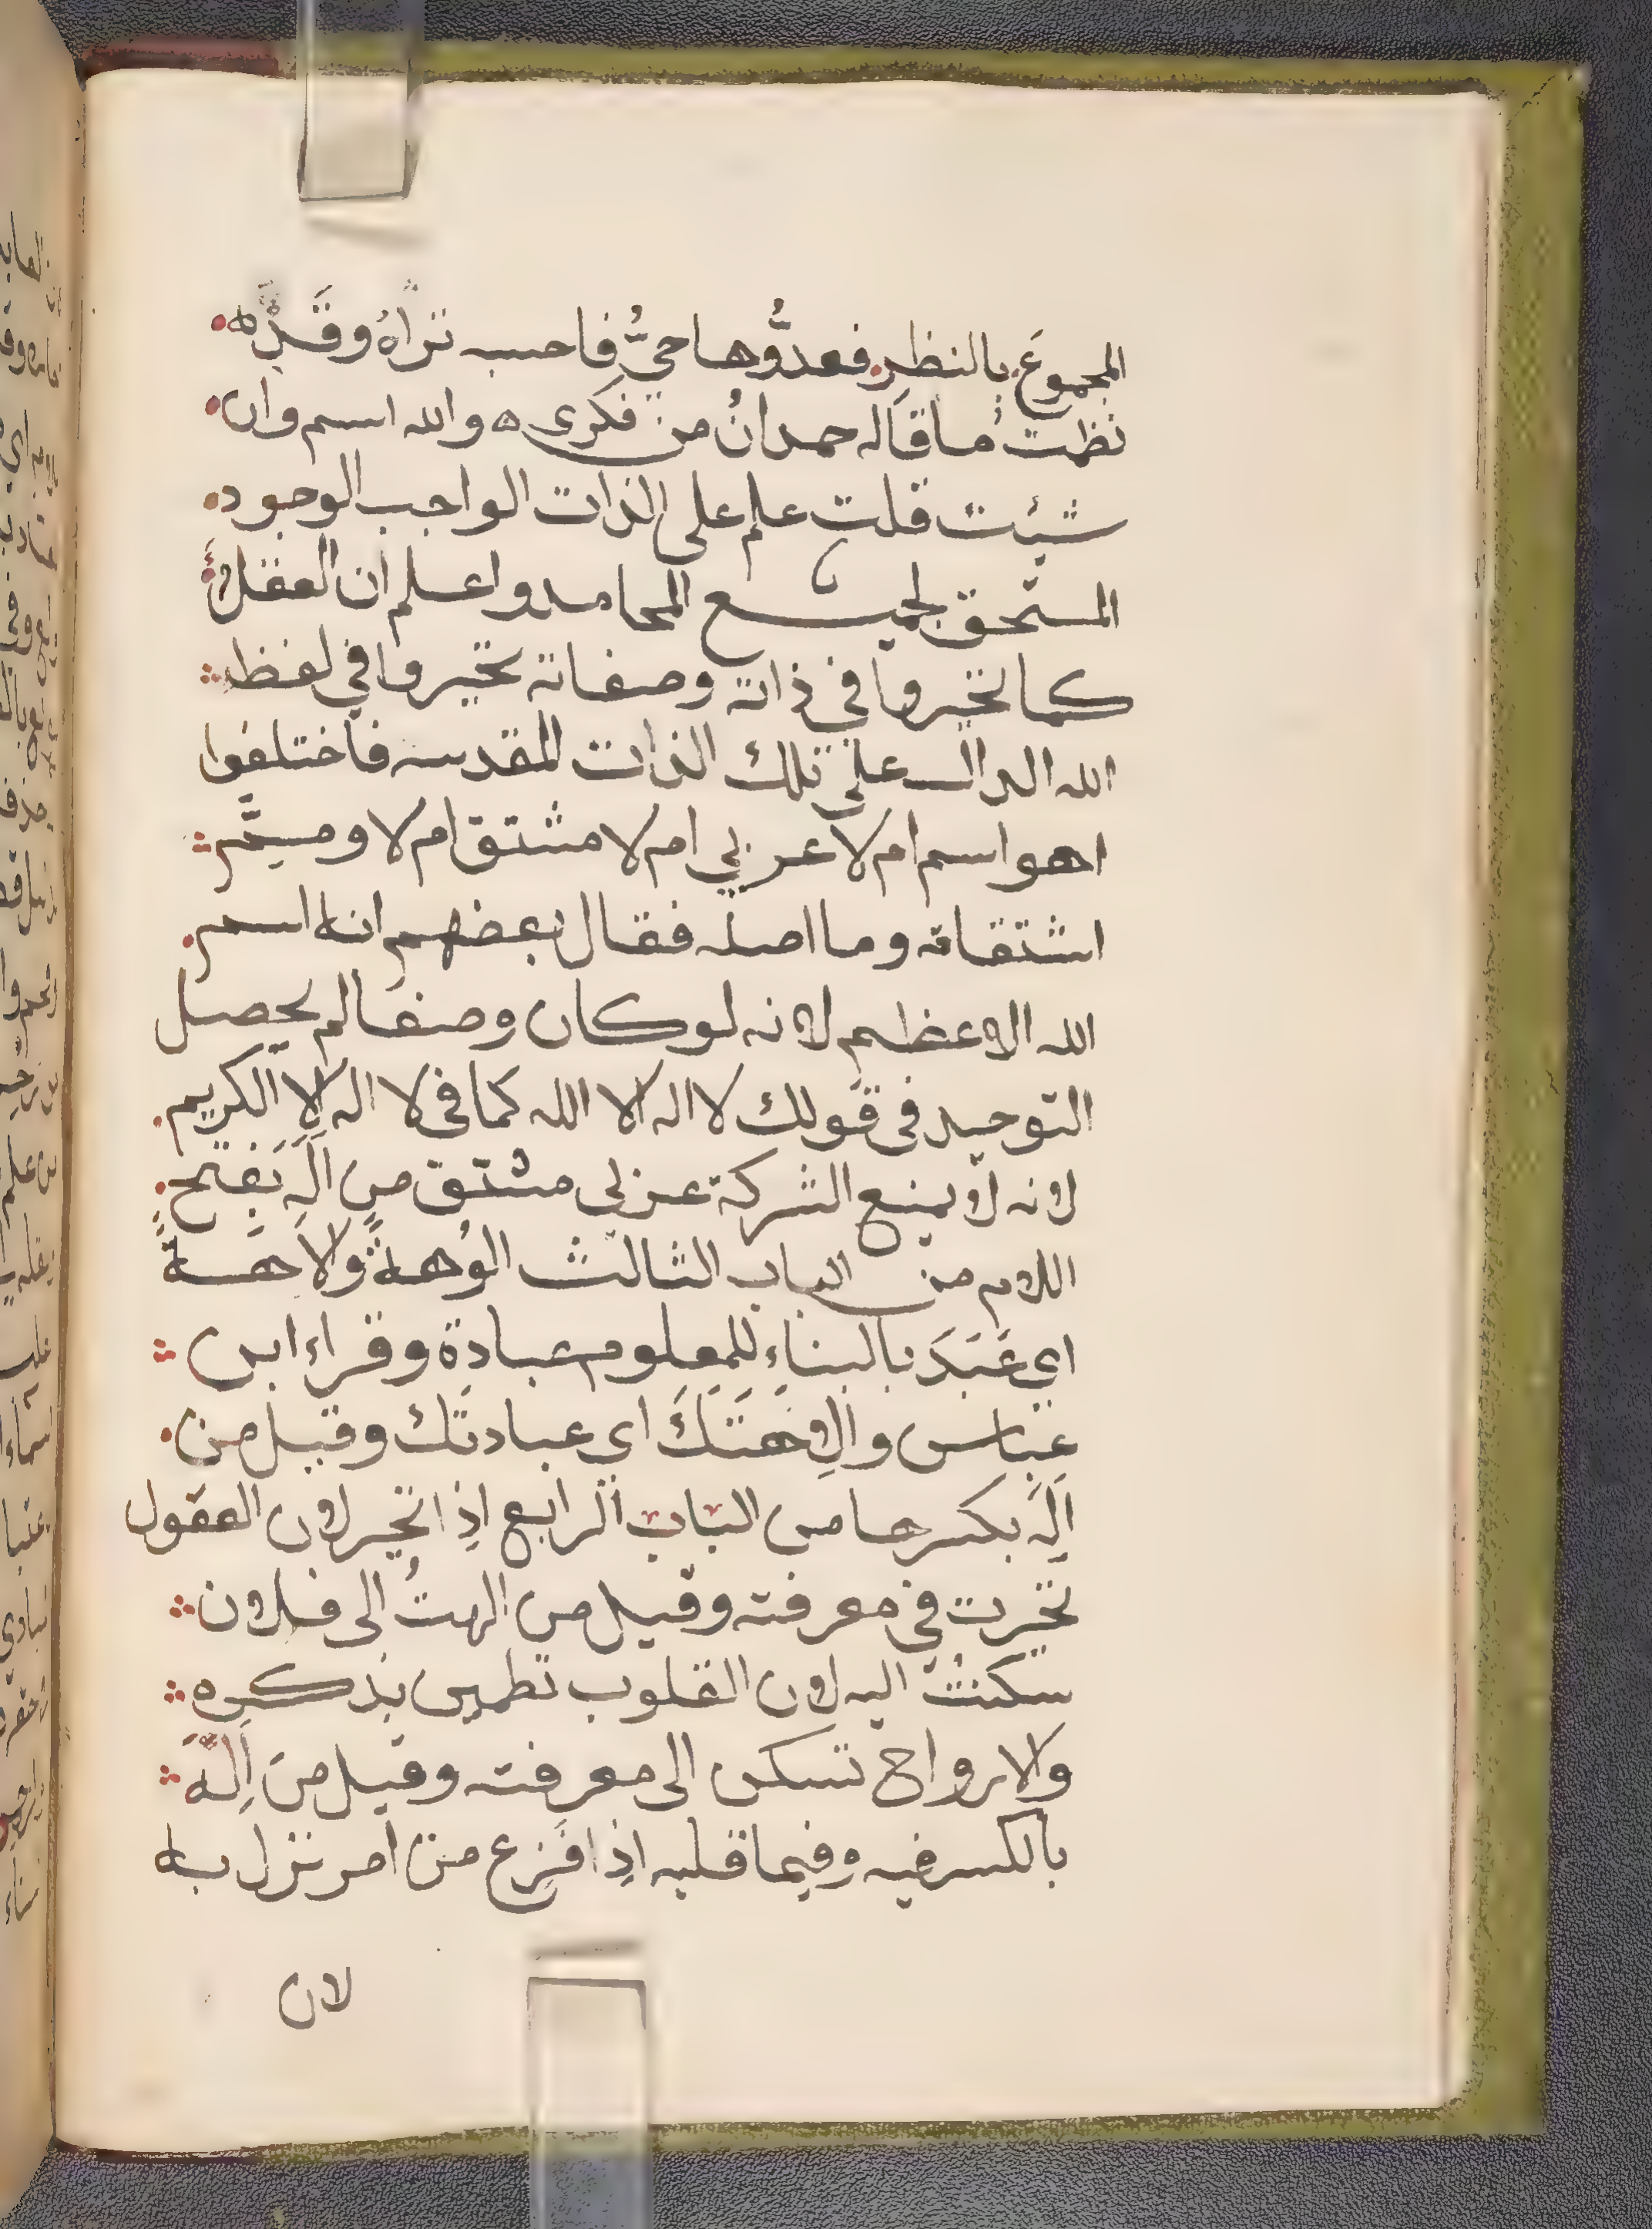 المجموعَ بالنظرِ فعدُّوها حيٌّ فاحسب تراهُ وقَد
نظمتُ ما قاله حمدانُ من فكرى ه والله اسم وان
شئت قلت علم على الذات الواجب الوجود
المستحق لجميع المحامد واعلم ان العقلاءَ
كما تحيروا في ذاته وصفاته تحيروا في لفظ
الله الدال على تلك الذات المقدسه فاختلفوا
اهو اسم ام لا عربي ام لا مشتق ام لا ومم
اشتقاقه وما اصله فقال بعضهم انه اسم
الله الاعظم لانه لو كان وصفا لم يحصل
التوحيد فى قولك لا اله الا الله كما فى لا اله الا الكريم
لانه لا يمنع الشركة عربي مشتق من اَلَه بفتح
اللام من الباب الثالث الوُهة وَلاَهَة
اي عَبَدَ بالبناءِ للمعلوم عبادة وقراء ابن
عباس والِاهَتَكَ اي عبادتك وقيل من
اَلِه بكسرها من الباب الرابع اذِا تحير لان العقول
تحيرت في معرفته وقيل من الهتُ الى فلان
سكنتُ اليه لان القلوب تطمين بذكره
والارواح تسكن الى معرفته وقيل من اَلِهَ
بالكسر فيه وفيما قبله اذِا فَزِع من امر نزل به
لان